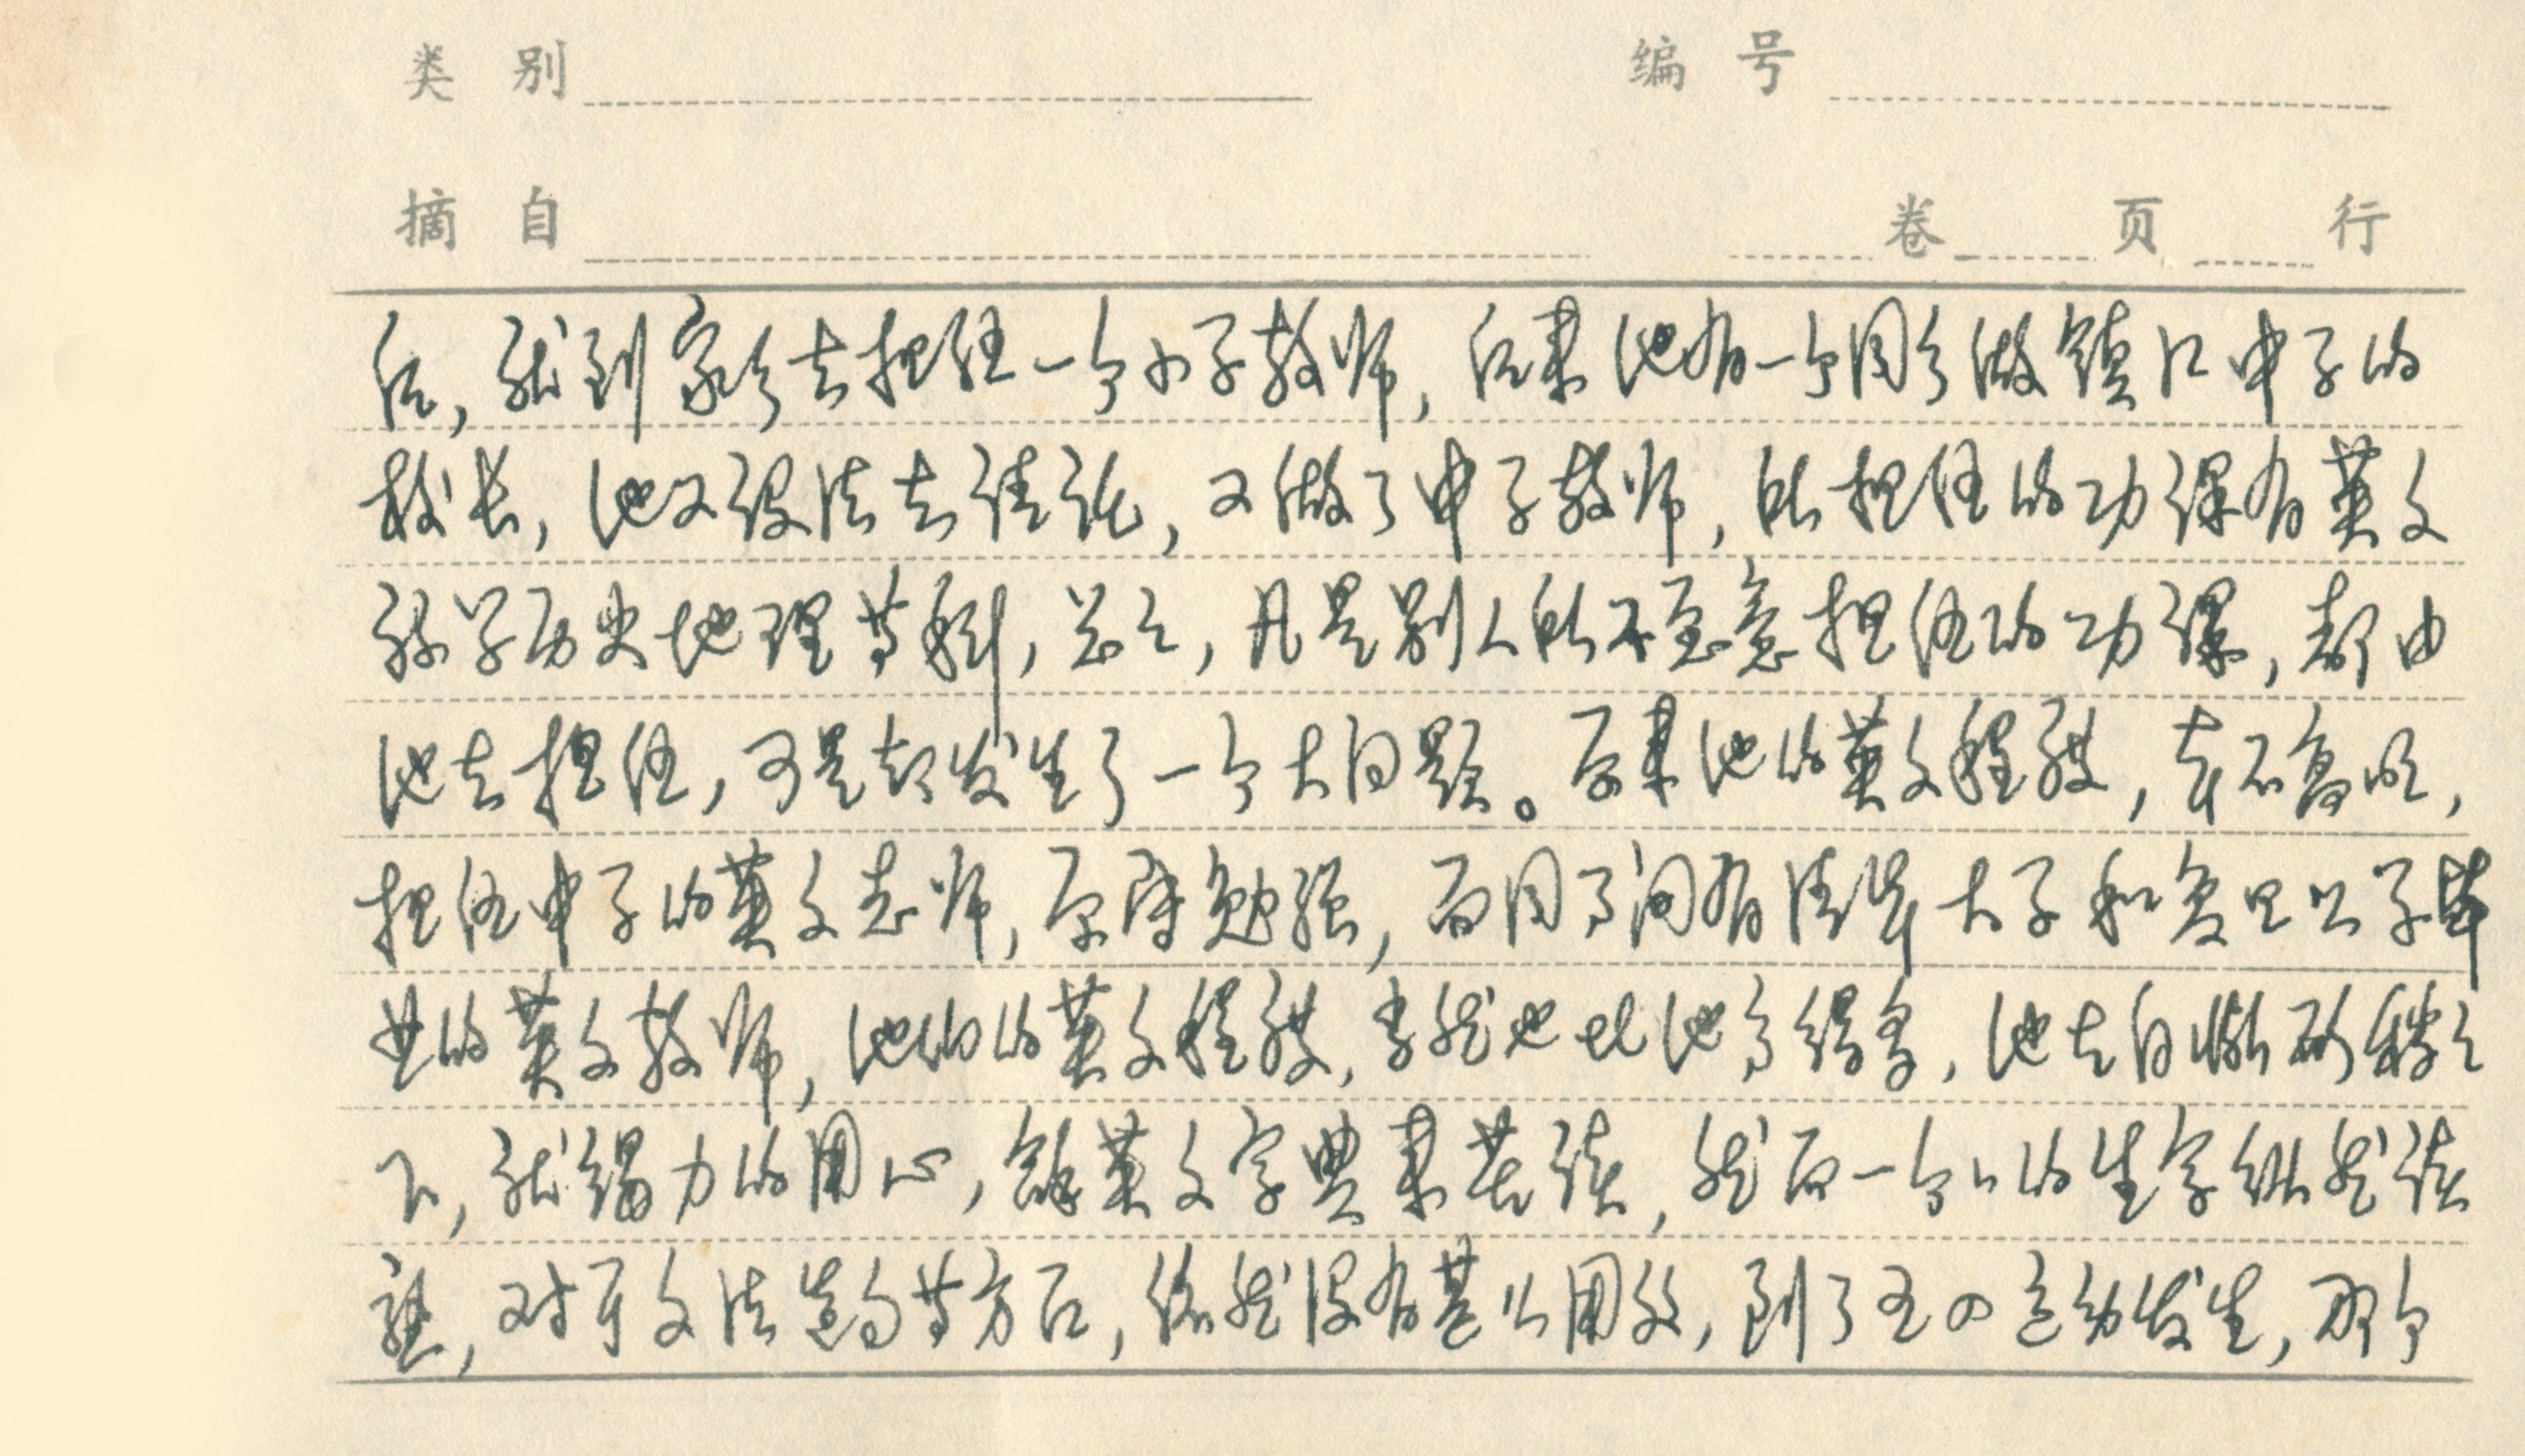 类别 编号
摘自 卷 页 行
后,就到家乡去担任一个小学教师,后来他有一个同乡做镇江中学的
校长,他又设法去请托,又做了中学教师,所担任的功课有英文
数学历史地理等科,总之,凡是别人所不愿意担任的功课,都由
他去担任,可是却发生了一个大问题。原来他的英文程度,并不高明,
担任中学的英文老师,原属勉强,而同事间有清华大学和复旦公学毕
业的英文教师,他们的英文程度,当然也比他高得多,他在自惭形秽之
下,就竭力的用心,拿英文字典来苦读,然而一个个的生字纵然读
熟,对于文法造句等方面,依然没有甚么用效,到了五四运动发生,那个